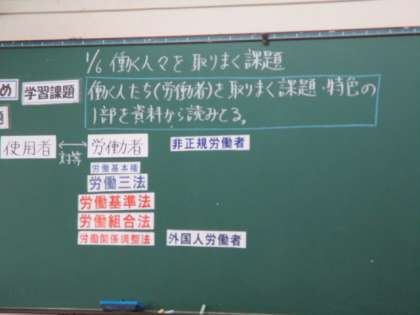 1/6 働く人々を取りまく課題
め
学習課題
働く人たち(労働者)を取りまく課題・特色の
1部を資料から読みとる。
題
使用者 ⟷ 労働者 非正規労働者
対等
労働基本権
労働三法
労働基準法
労働組合法
労働関係調整法 外国人労働者